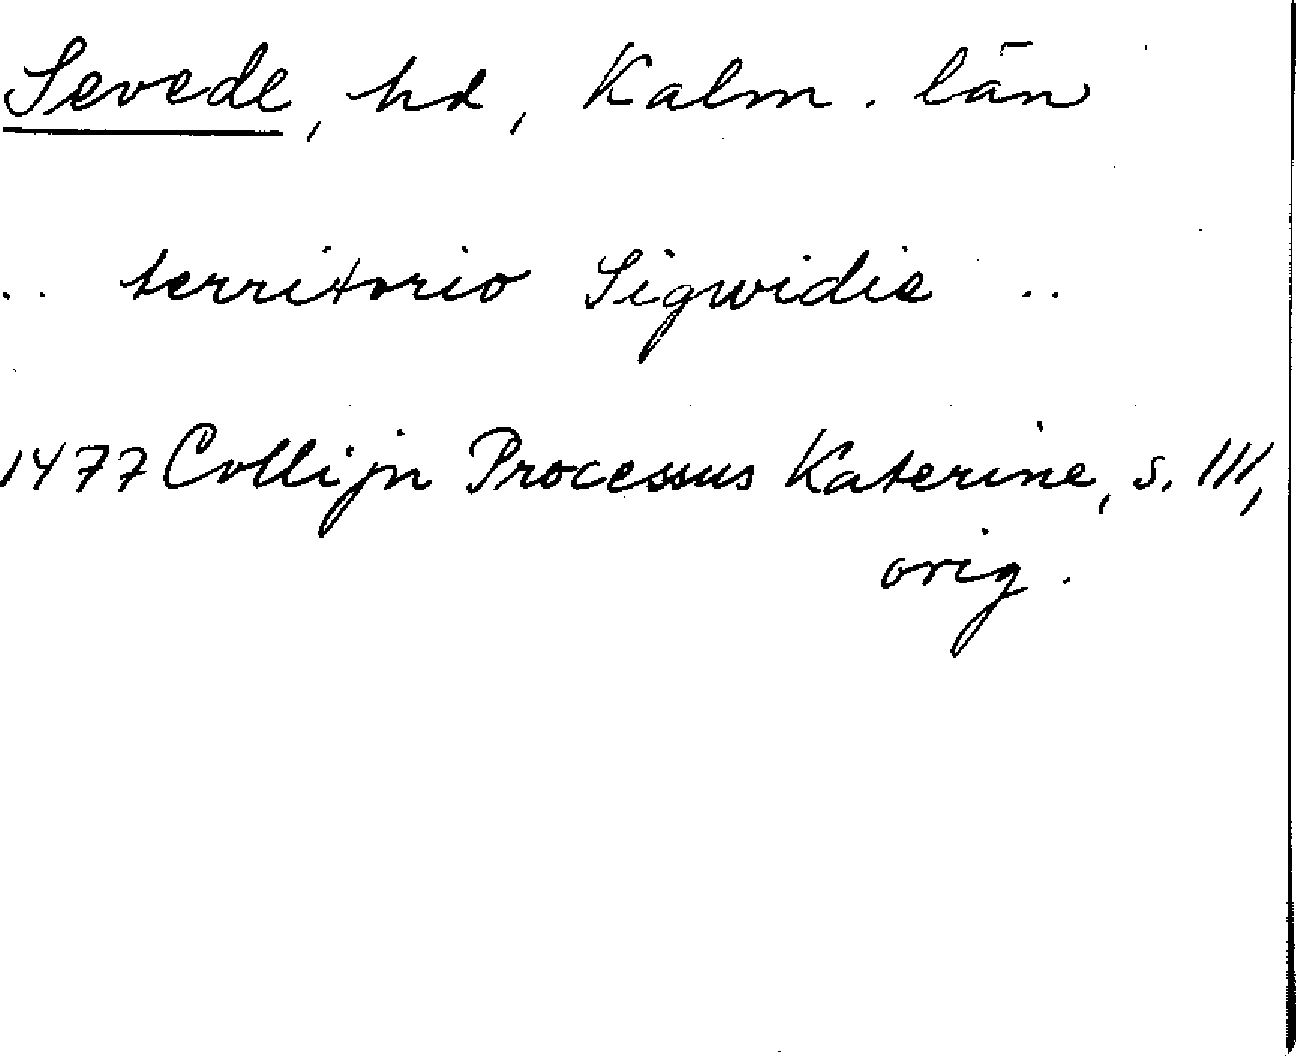 Sevede, hd, Kalm. län
.. territorio Sigwidie ..
1477 Collijn Processus Katerine, s. 111,
orig.